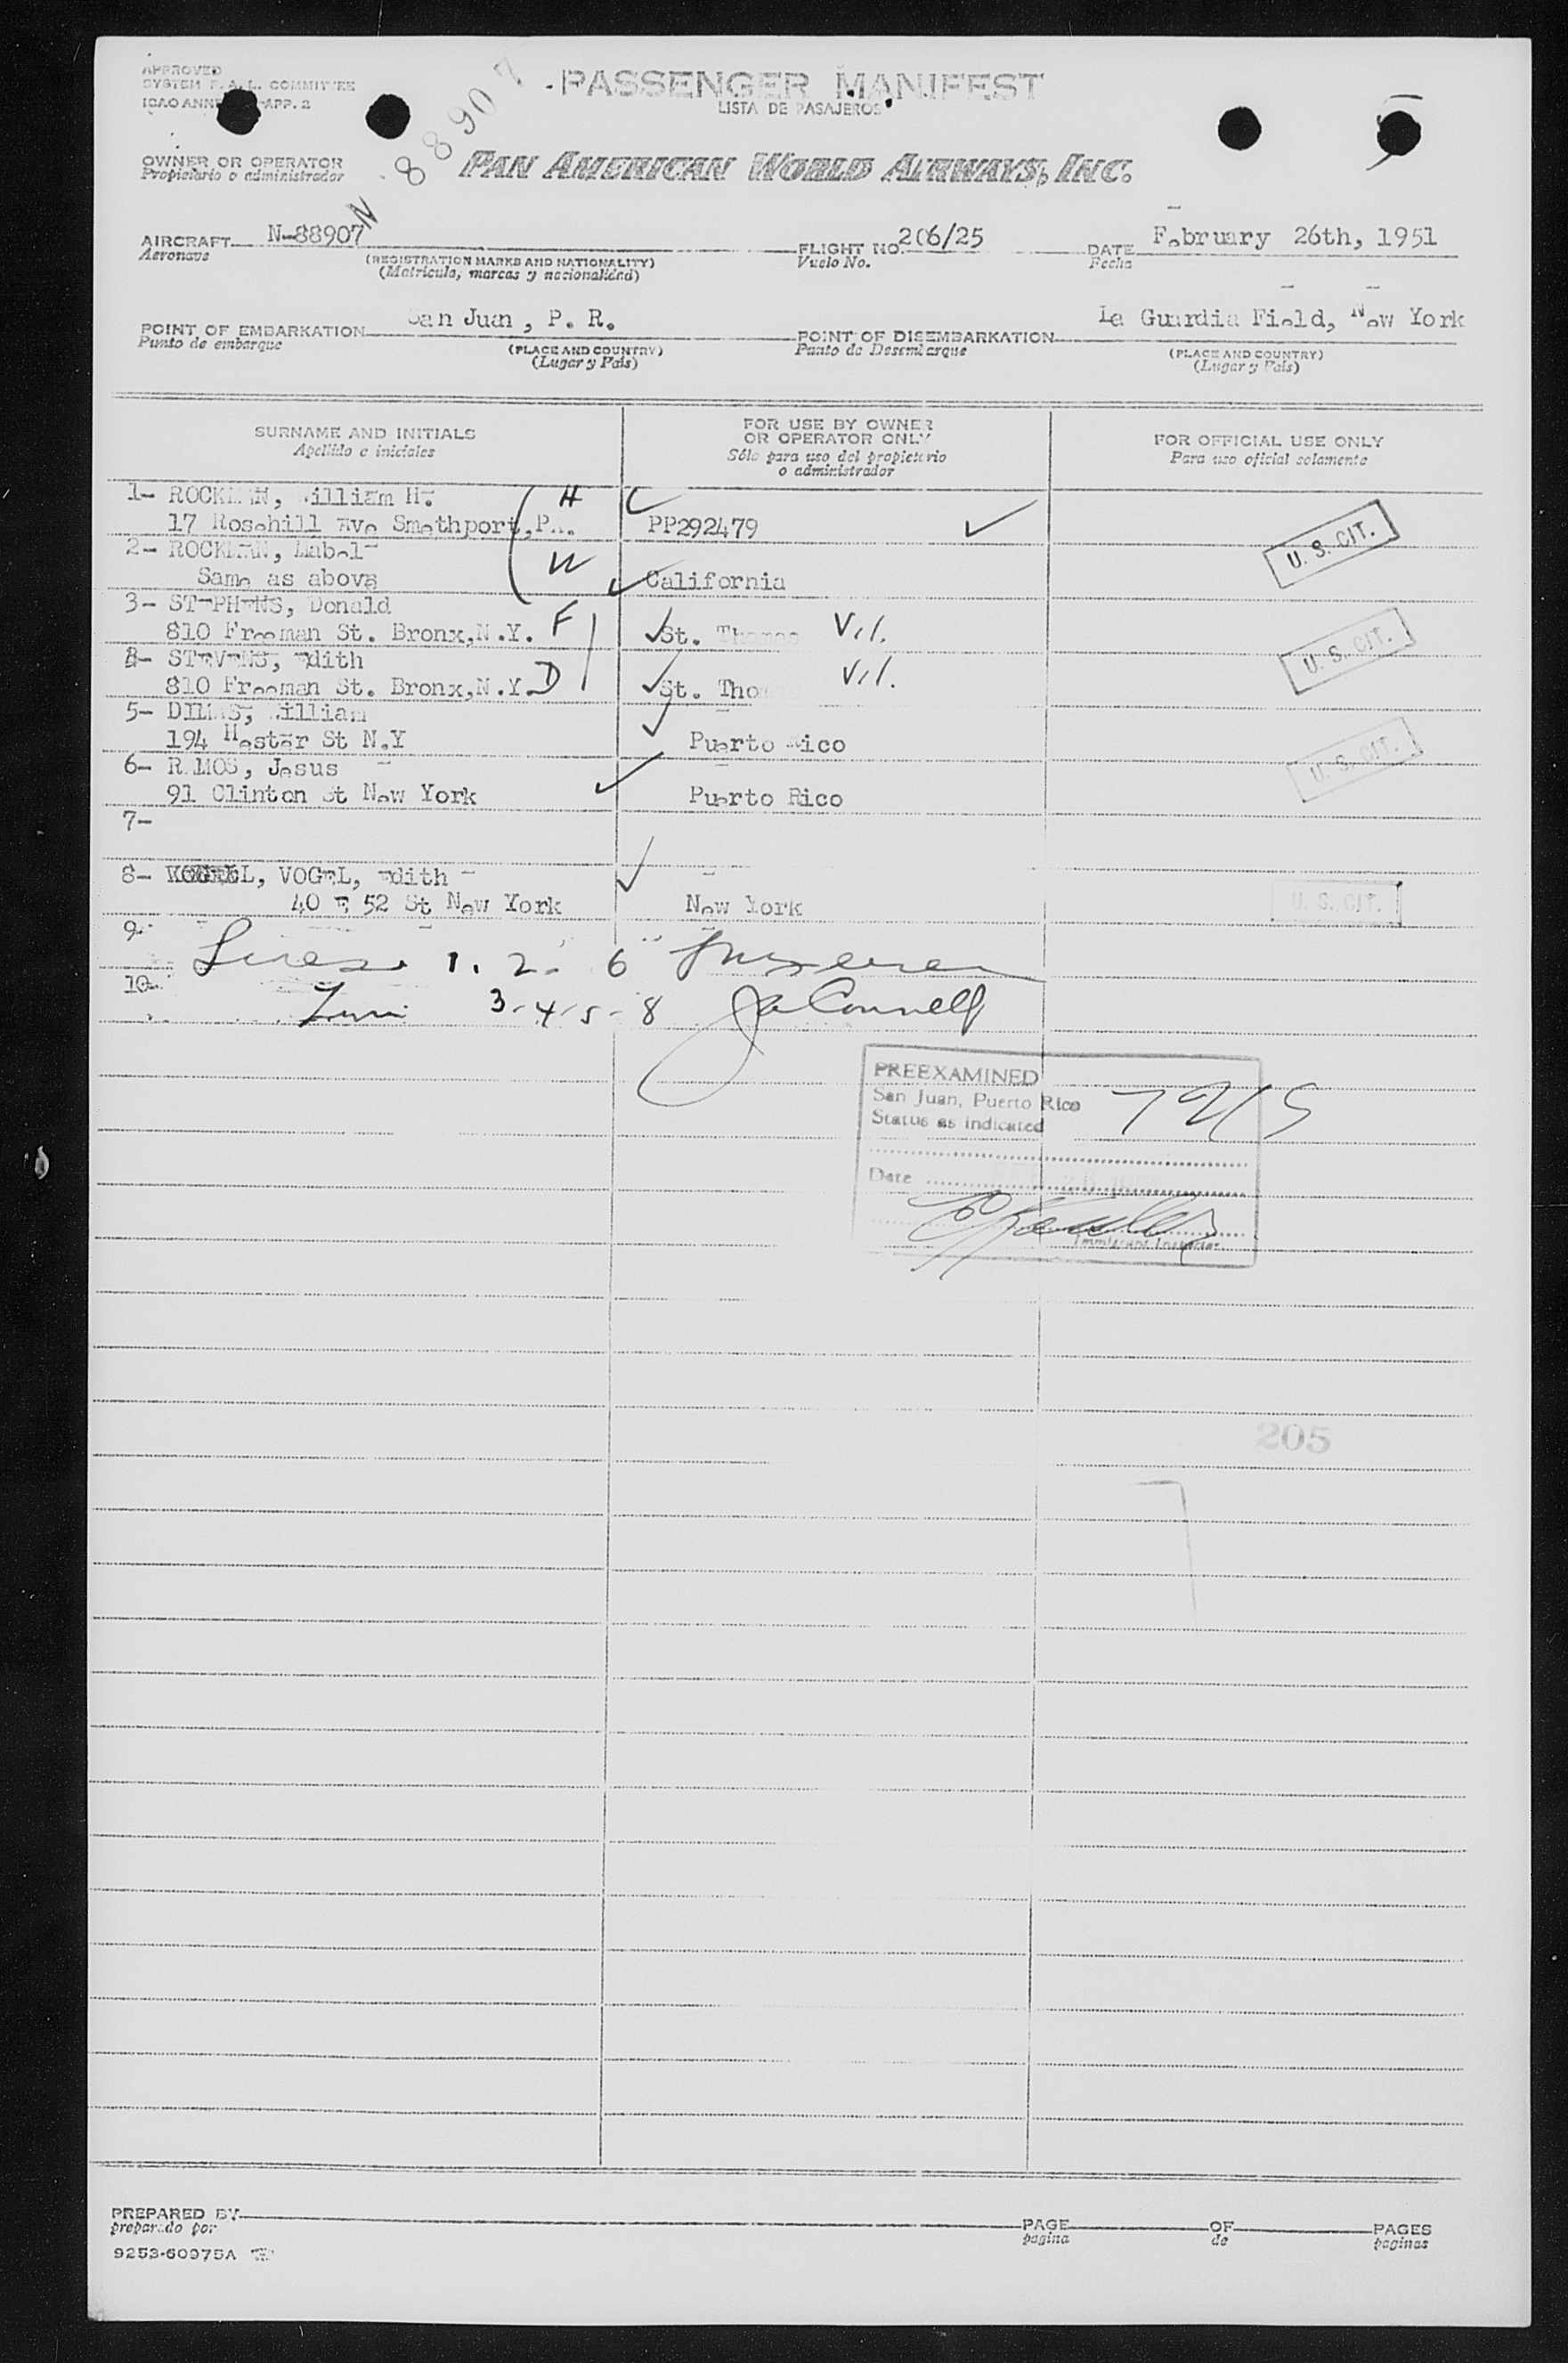 APPROVED
SYSTEM F.A.L. COMMITTEE
ICAO ANNEX APP. 2
N 88907
PASSENGER MANIFEST
LISTA DE PASAJEROS
OWNER OR OPERATOR
Propietario o administrador
PAN AMERICAN WORLD AIRWAYS, INC.
AIRCRAFT N-88907 FLIGHT NO. 206/25 DATE February 26th, 1951
Aeronave (REGISTRATION MARKS AND NATIONALITY) Vuelo No. Fecha
(Matricula, marcas y nacionalidad)
POINT OF EMBARKATION San Juan, P. R. POINT OF DISEMBARKATION La Guardia Field, New York
Punto de embarque (PLACE AND COUNTRY) Punto de Desembarque (PLACE AND COUNTRY)
(Lugar y País) (Lugar y País)
SURNAME AND INITIALS FOR USE BY OWNER OR OPERATOR ONLY FOR OFFICIAL USE ONLY
Apellido e iniciales Sólo para uso del propietario o administrador Para uso oficial solamente
1- ROCKMAN, William H. H
17 Rosehill Ave Smethport, PA. PP292479 U. S. CIT.
2- ROCKMAN, Mabel
Same as above W California
3- STEPHENS, Donald
810 Freeman St. Bronx, N.Y. F St. Thomas V.I. U. S. CIT.
4- STEVENS, Edith
810 Freeman St. Bronx, N.Y. D St. Tho V.I.
5- DIMAS, William
194 Hester St N.Y Puerto Rico U. S. CIT.
6- RAMOS, Jesus
91 Clinton St New York Puerto Rico
7-
8- VOGEL, Edith
40 E 52 St New York New York U. S. CIT.
9-
Lines 1. 2- 6
10-
3-4-5-8 Connell
PREEXAMINED
San Juan, Puerto Rico
Status as indicated
Date
Immigrant Inspector
205
PREPARED BY PAGE OF PAGES
preparado por pagina de paginas
9253-60975A